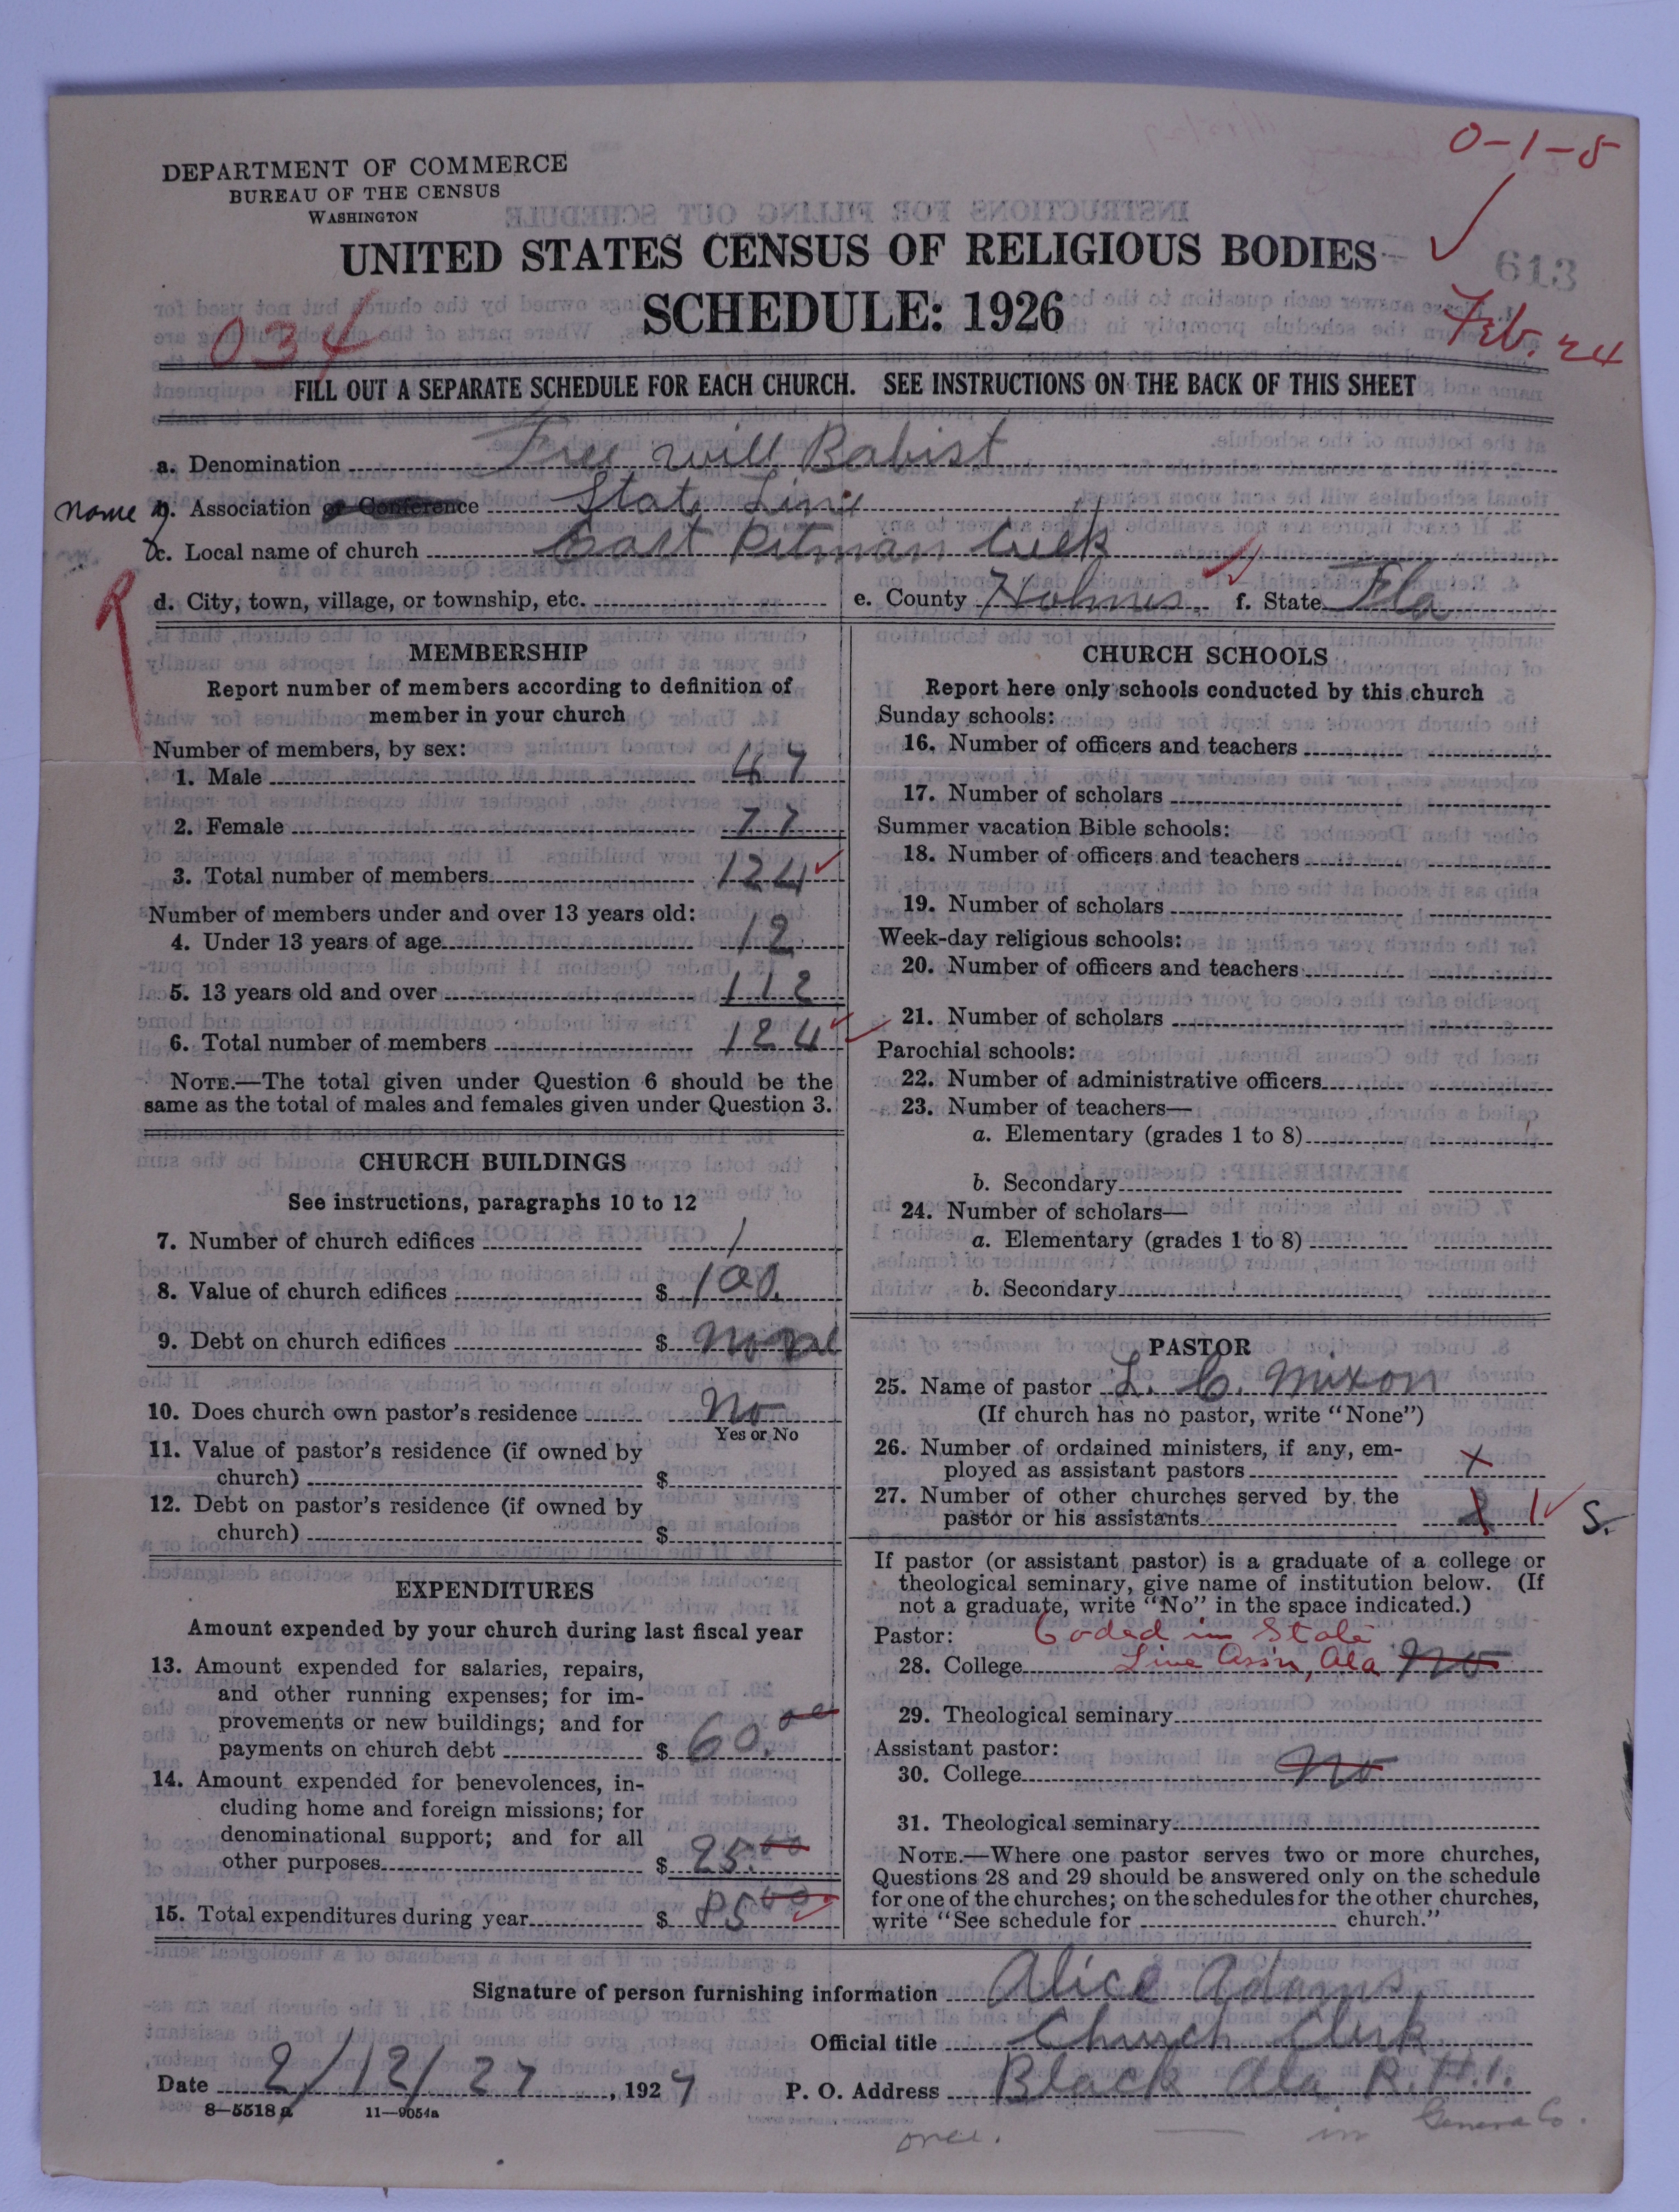 0-1-5
DEPARTMENT OF COMMERCE
BUREAU OF THE CENSUS
WASHINGTON
UNITED STATES CENSUS OF RELIGIOUS BODIES
613
SCHEDULE: 1926
034
Feb. 24
FILL OUT A SEPARATE SCHEDULE FOR EACH CHURCH. SEE INSTRUCTIONS ON THE BACK OF THIS SHEET
a. Denomination Free Will Babist
name b. Association or Conference State Line
c. Local name of church East Pitman Creek
d. City, town, village, or township, etc. e. County Holmes f. State Fla
MEMBERSHIP
Report number of members according to definition of
member in your church
Number of members, by sex:
1. Male 47
2. Female 77
3. Total number of members 124
Number of members under and over 13 years old:
4. Under 13 years of age 12
5. 13 years old and over 112
6. Total number of members 124
NOTE.—The total given under Question 6 should be the
same as the total of males and females given under Question 3.
CHURCH BUILDINGS
See instructions, paragraphs 10 to 12
7. Number of church edifices 1
8. Value of church edifices $ 100.
9. Debt on church edifices $ none
10. Does church own pastor's residence No
Yes or No
11. Value of pastor's residence (if owned by
church) $
12. Debt on pastor's residence (if owned by
church) $
EXPENDITURES
Amount expended by your church during last fiscal year
13. Amount expended for salaries, repairs,
and other running expenses; for im-
provements or new buildings; and for
payments on church debt $ 60.00
14. Amount expended for benevolences, in-
cluding home and foreign missions; for
denominational support; and for all
other purposes $ 25.00
15. Total expenditures during year $ 85.00
CHURCH SCHOOLS
Report here only schools conducted by this church
Sunday schools:
16. Number of officers and teachers
17. Number of scholars
Summer vacation Bible schools:
18. Number of officers and teachers
19. Number of scholars
Week-day religious schools:
20. Number of officers and teachers
21. Number of scholars
Parochial schools:
22. Number of administrative officers
23. Number of teachers—
a. Elementary (grades 1 to 8)
b. Secondary
24. Number of scholars—
a. Elementary (grades 1 to 8)
b. Secondary
PASTOR
25. Name of pastor L. C. Mixon
(If church has no pastor, write "None")
26. Number of ordained ministers, if any, em-
ployed as assistant pastors x
27. Number of other churches served by the
pastor or his assistants 1 S.
If pastor (or assistant pastor) is a graduate of a college or
theological seminary, give name of institution below. (If
not a graduate, write "No" in the space indicated.)
Pastor: Coded in State
28. College Line Assn, Ala No
29. Theological seminary
Assistant pastor:
30. College No
31. Theological seminary
NOTE.—Where one pastor serves two or more churches,
Questions 28 and 29 should be answered only on the schedule
for one of the churches; on the schedules for the other churches,
write "See schedule for church."
Signature of person furnishing information Alice Adams
Official title Church Clerk
Date 2/12/27, 1927 P. O. Address Black Ala R.#1.
8—5518 a 11—9054a
once. — in Geneva Co.